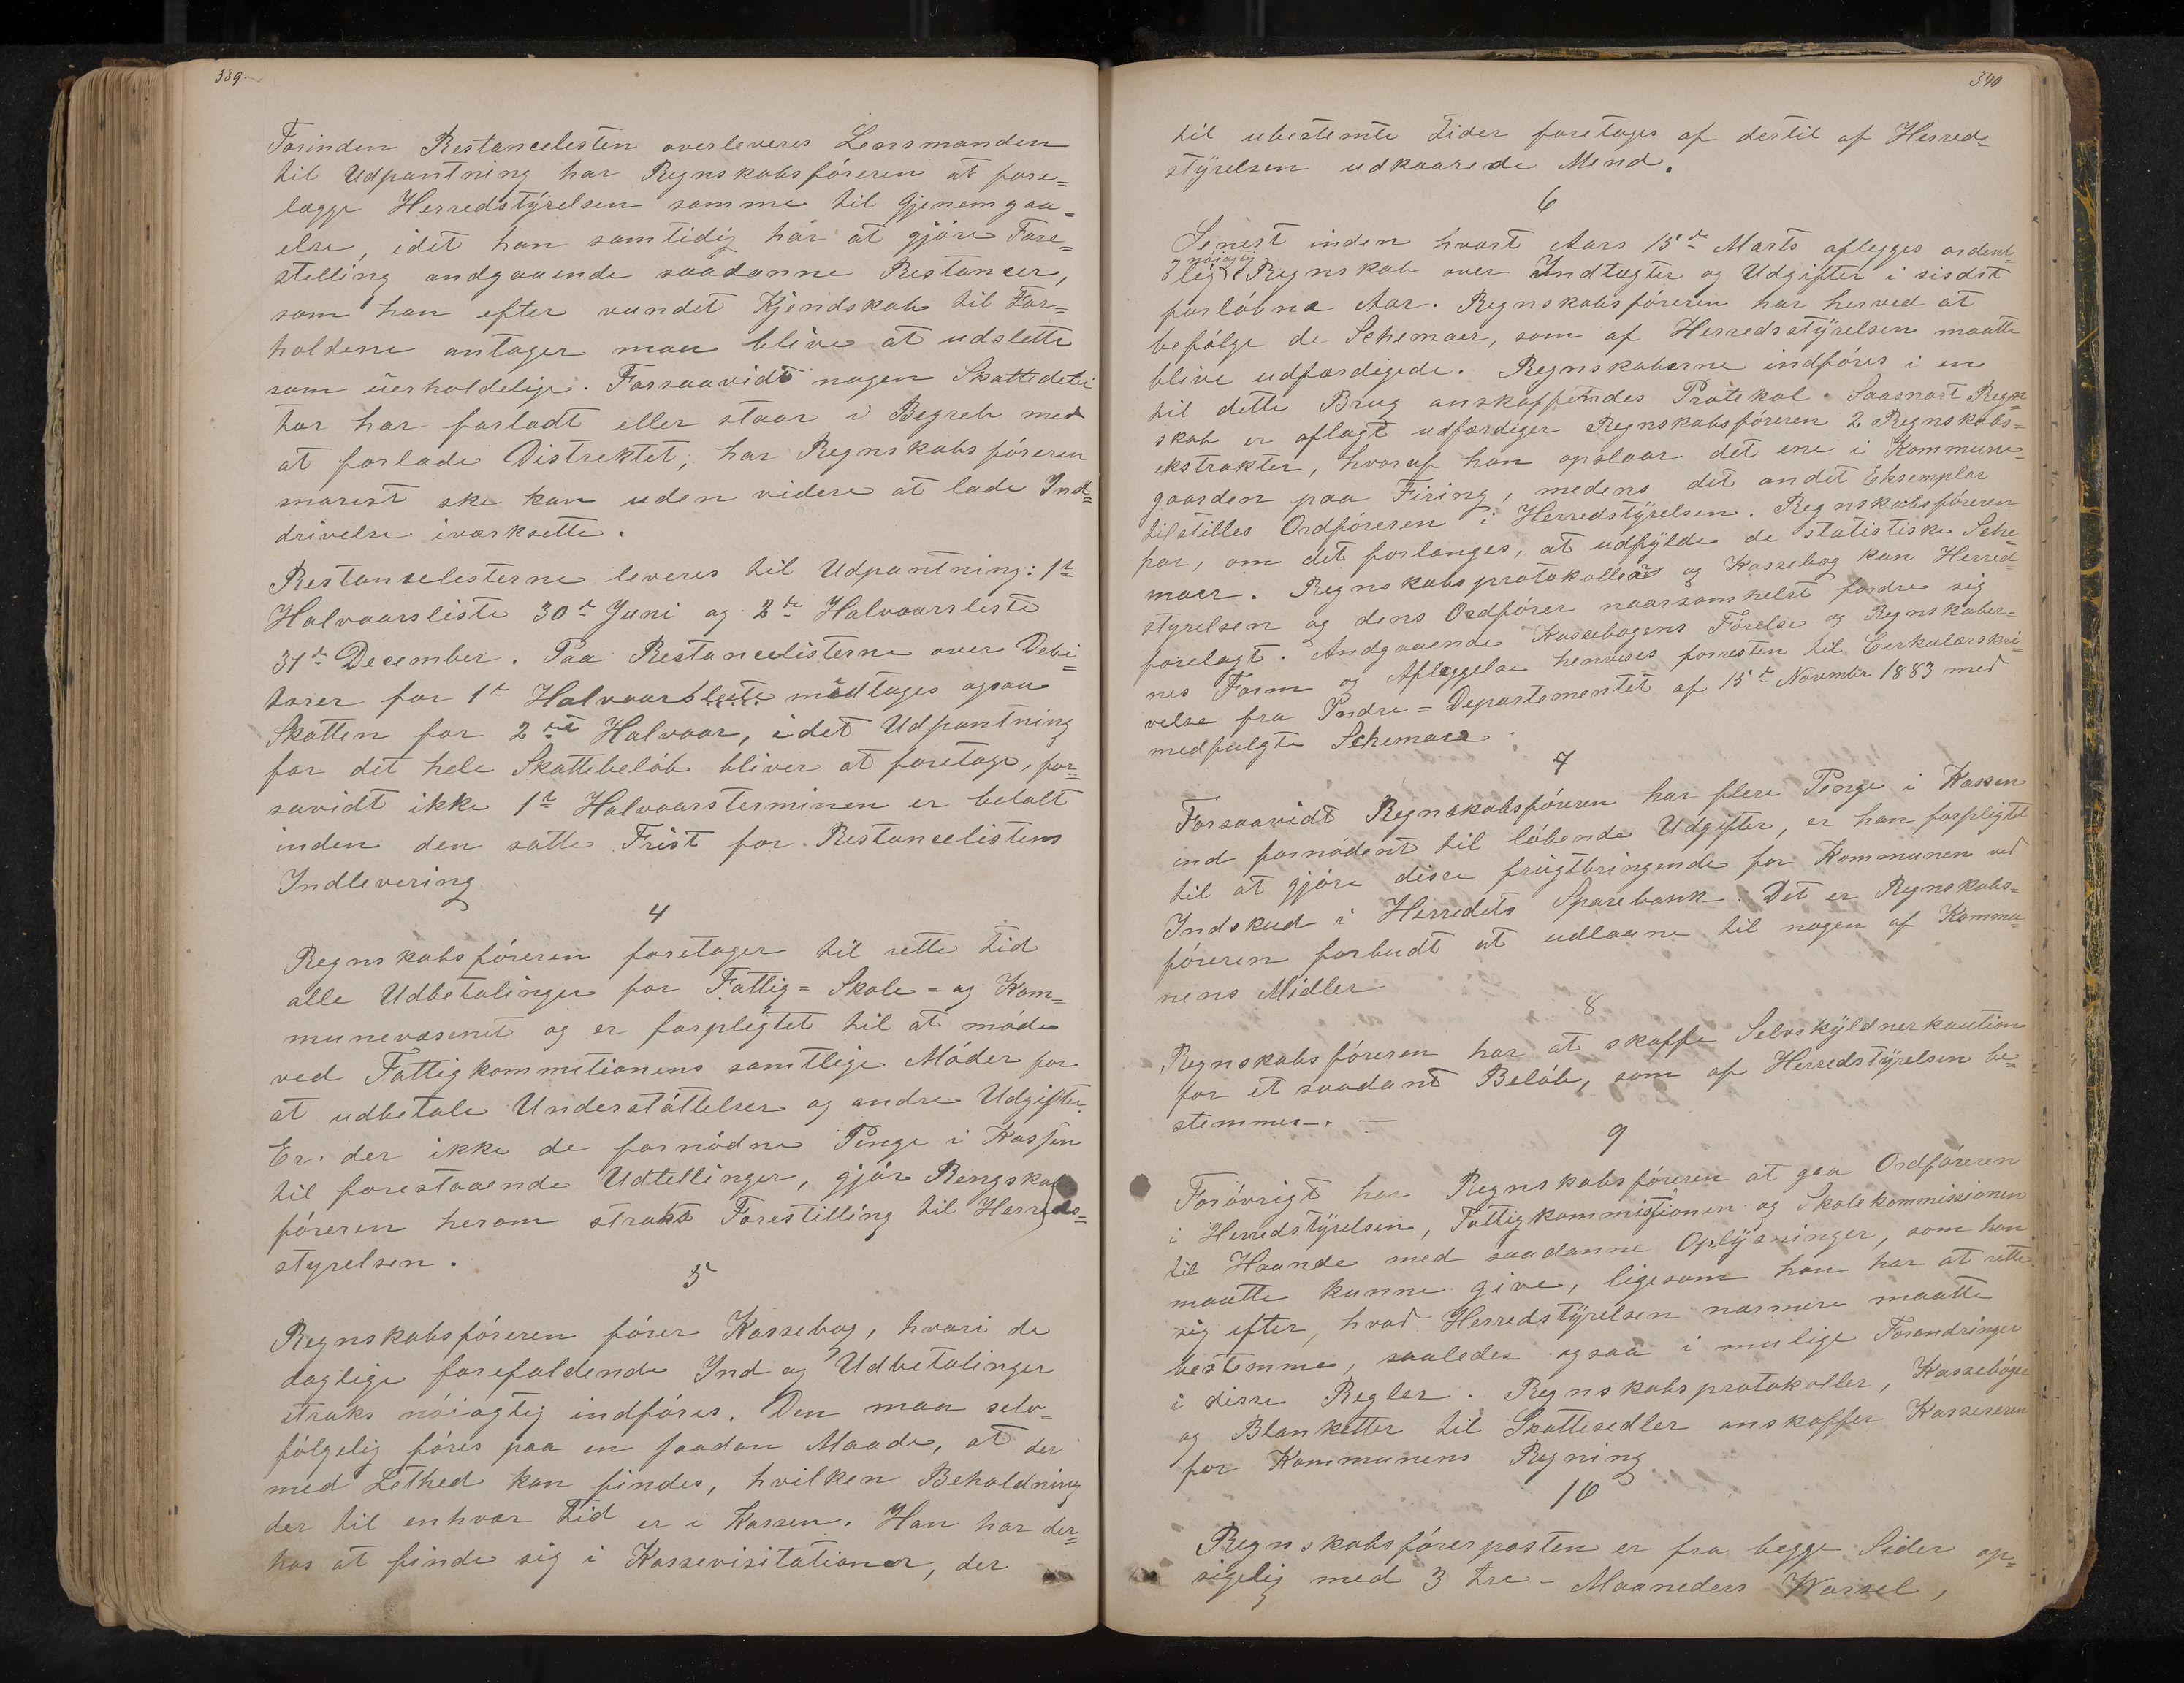 339
Forinden Restancelesten overleveres Lensmanden
til Udpantning har Regnskabsföreren at fore=
lægge Herredstÿrelsen samme til Gjenemgaa=
else, idet han samtidig har at gjöre Fore=
stelling andgaaende saadanne Restanser,
som han efter vundet Kjendskab til For=
holdene antager maa blive at udslette
som uerholdelige. Forsaavidt nogen Skattedebi
tor har forladt eller staar i Begreb med
at forlade Distrektet, har Regnskabsföreren
snarest ske kan uden videre at lade Ind=
drivelse iværksette.
Restanselesterne leveres til Udpantning: 1te
Halvaarsliste 30te Juni og 2de Halvaarsleste
31te December. Paa Restancelisterne over Debi=
torer for 1te Halvaarsleste medtages ogsaa
Skatten for 2det Halvaar, idet Udpantning
for det hele Skattebelöb bliver at foretage, for=
savidt ikke 1te Halvaarsterminen er betalt
inden den satte Frist for Restancelistens
Indlevering
4
Regnskabsföreren foretager til rette Tid
alle Udbetalinger for Fattig= Skole= og Kom=
munevæsenet og er forpligtet til at möde
ved Fattigkommitionens samtlige Möder for
at udbetale Understöttelser og andre Udgifter.
Er der ikke de fornödne Penge i Kassen
til forestaaende Udtellinger, gjör Rengskabs
föreren herom straks Forestilling til Herreds=
styrelsen.
5
Regnskabsföreren förer Kassebog, hvori de
daglige forefaldende Ind og Udbetalinger
straks nöiagtig indföres. Den maa selv=
fölgelig föres paa en saadan Maade, at der
med Lethed kan findes, hvilken Beholdning
der til enhver Tid er i Kassen. Han har der=
hos at finde sig i Kassevisitationer, der
340
til ubestemte Tider foretages af dertil af Herreds=
stÿrelsen udkaarede Mend.
6
Senest inden hvert Aars 15de Marts aflegges ordent=
lig og nöiagtig Regnskab over Indtægter og Udgifter i sisdst
forlöbne Aar. Regnskabsföreren har herved at
befölge de Schemaer, som af Herredsstÿrelsen maatte
blive udfærdigede. Regnskaberne indföres i en
til dette Brug anskaffendes Protekol. Saasnart Regn=
skab er aflagt udfærdiger Regnskabsföreren 2 Regnskabs=
ekstrakter, hvoraf han opslaar det ene i Kommune=
gaarden paa Firing, medens det andet Eksemplar
tilstilles Ordföreren i Herredstÿrelsen. Regnskabsföreren
har, om det forlanges, at udfÿlde de statistiske Sche=
maer. Regnskabsprotokollen og Kassebog kan Herred
styrelsen og dens Ordförer naarsomhelst fordre sig
forelagt. Andgaaende Kassebogens Förelse og Regnskaber=
nes Form og Afleggelse henvises forresten til Cirkulærskri=
velse fra Indre=Departementet af 15de Novembr 1883 med
medfulgte Schemaer.
7
Forsaavidt Regnskabsföreren har flere Penge i Kassen
end fornödent til löbende Udgifter, er han forpligtet
til at gjöre disse frugtbringende for Kommunen ved
Indskud i Herredets Sparebank. Det er Regnskabs=
föreren forbudt at udlaane til nogen af Kommu
nens Midler
8
Regnskabsföreren har at skaffe Selvskÿldnerkaution
for et saadant Belöb, som af Herredstÿrelsen be=
stemmes. —
9
Forövrigt har Regnskabsföreren at gaa Ordföreren
i Herredstÿrelsen, Fattigkommissionen og Skolekommissionen
til Haande med saadanne Oplÿsninger, som han
maatte kunne give, ligesom han har at rette
sig efter, hvad Herredstÿrelsen nærmere maatte
bestemme, saaledes ogsaa i mulige Forandringer
i disse Regler. Regnskabsprotokoller, Kasseböger
og Blanketter til Skattesedler anskaffer Kassereren
for Kommunens Regning
10
Regnskabsförerposten er fra begge Sider op=
sigelig med 3 tre – Maaneders Varsel,